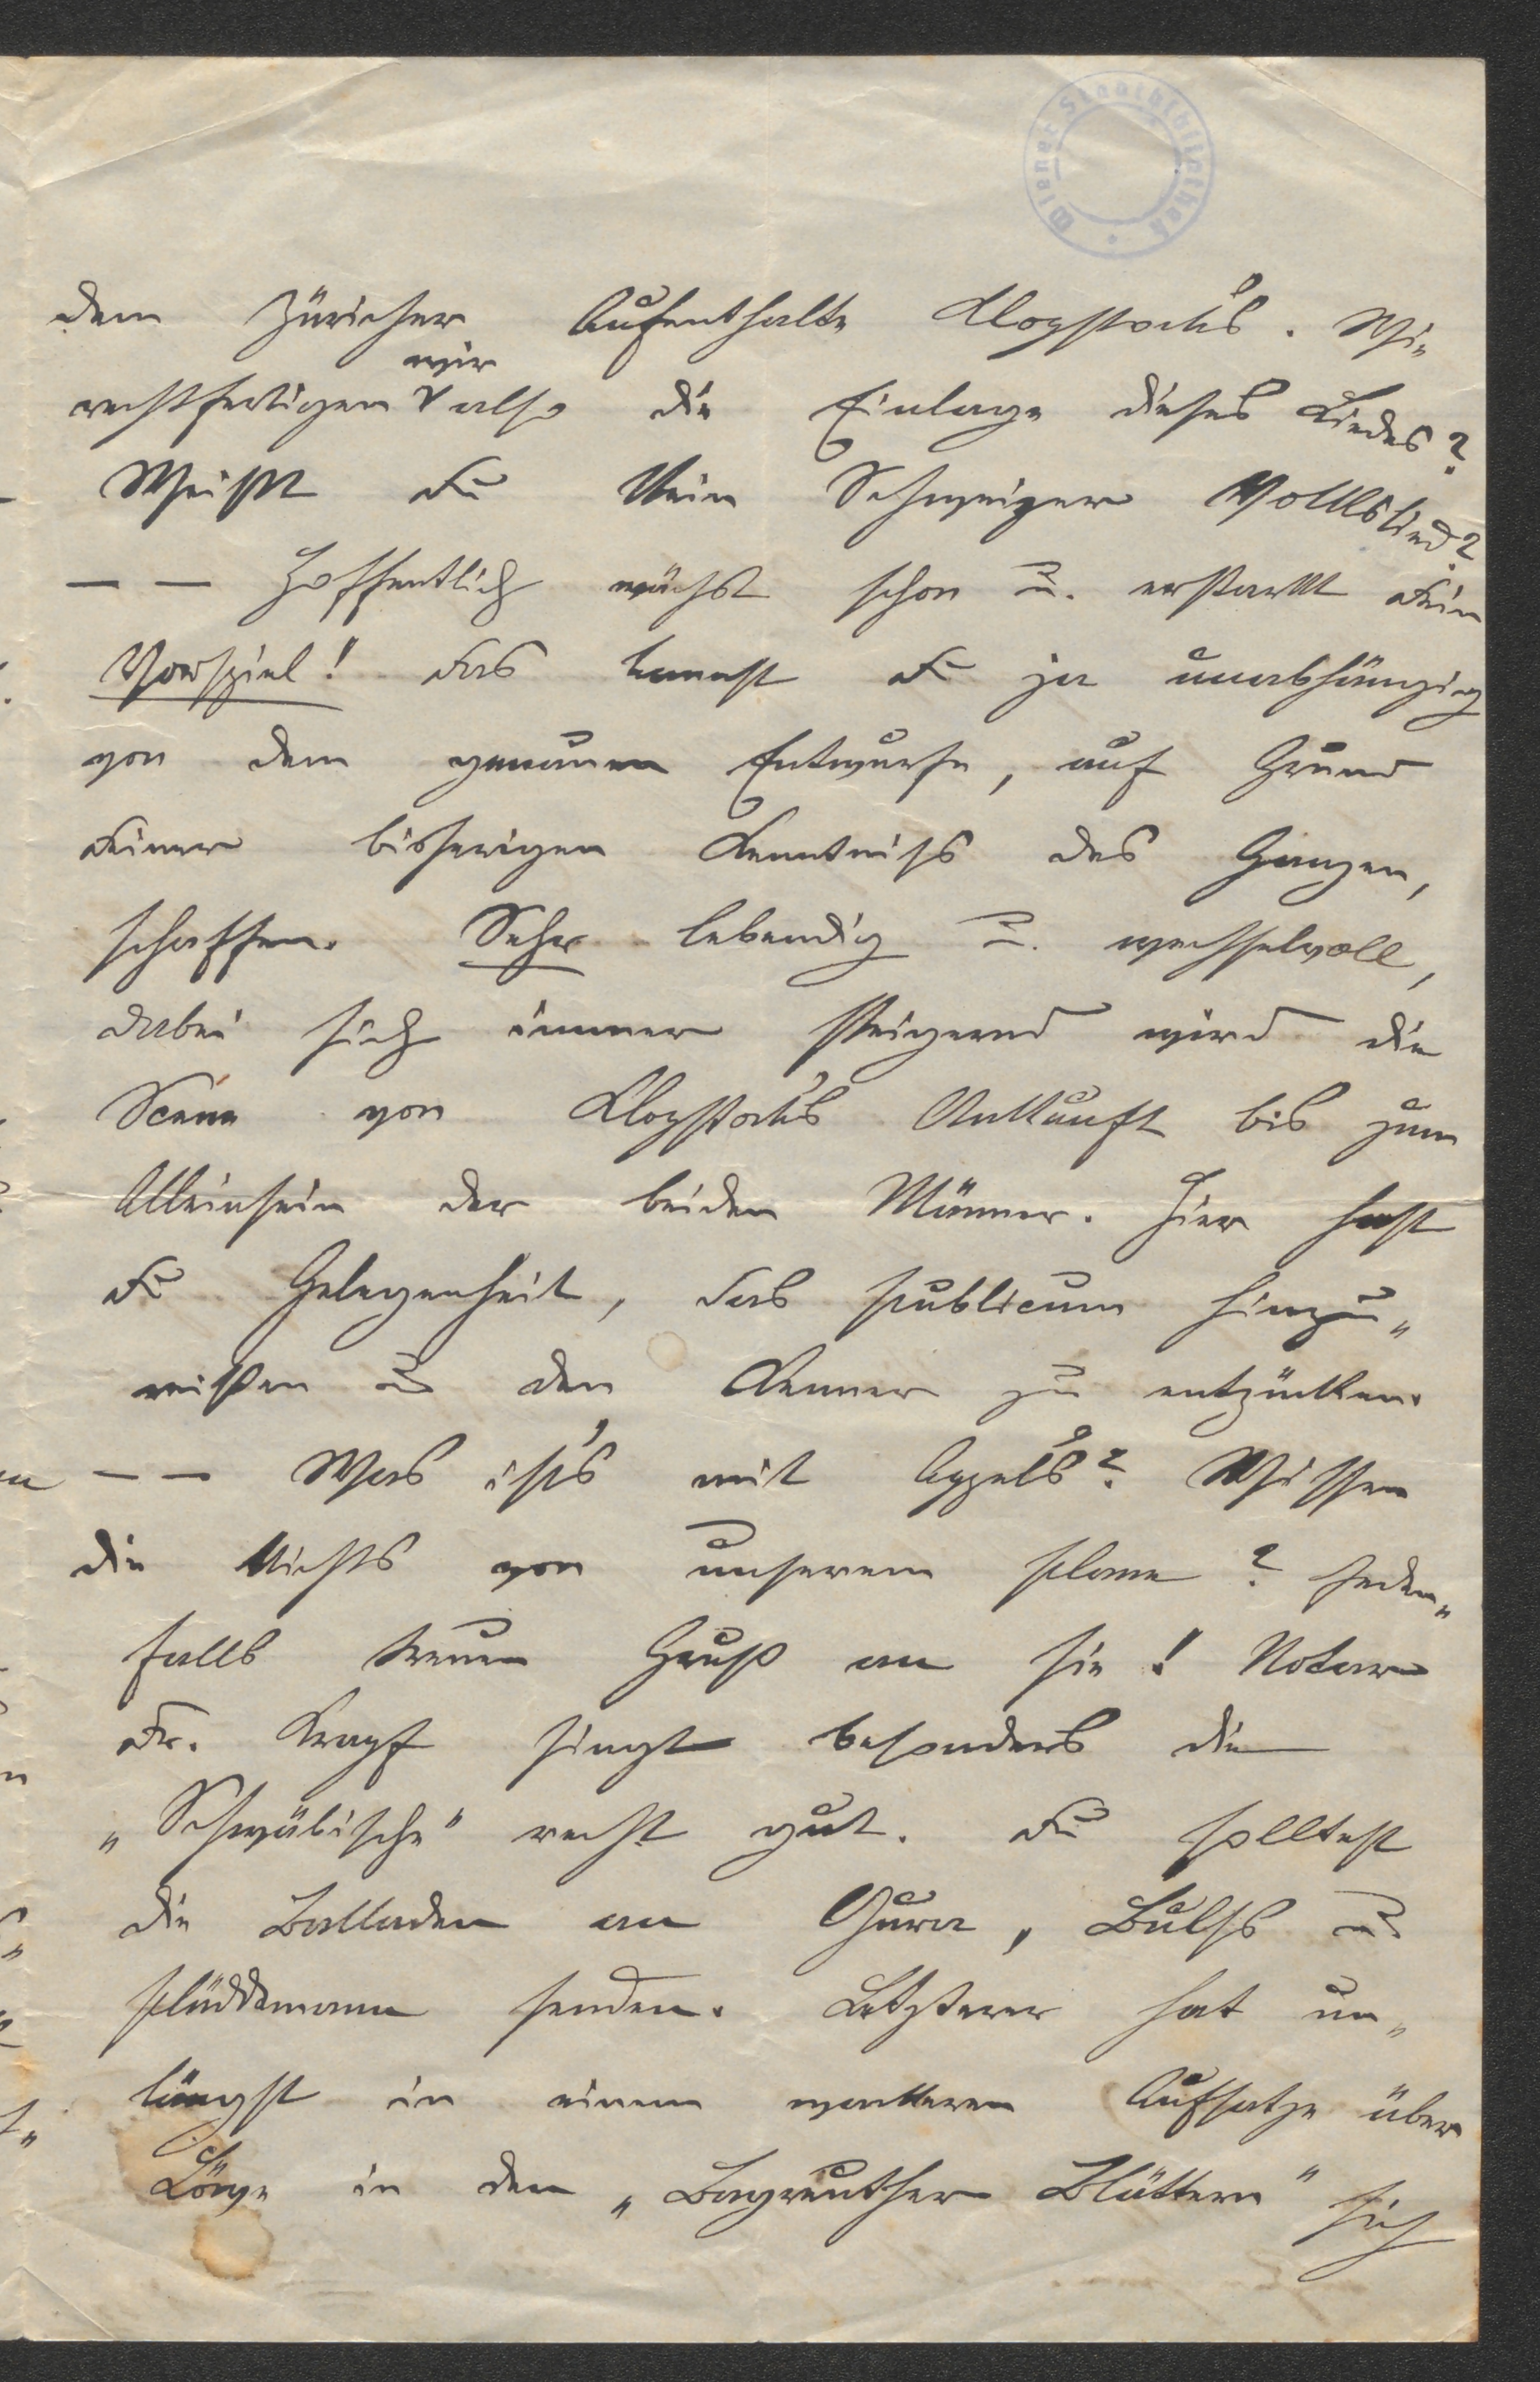 Wiener Stadtbibliothek
dem Züricher Aufenthalte Klopstock's. Wie
wir
rechtfertigen also die Einlage dieses Liedes?
Weißt Du kein Schweizer Volkslied?
— — Hoffentlich wächst schon u. erstarkt Dein
Vorspiel! Das kannst Du ja unabhängig
von dem genauen Entwurfe, auf Grund
Deiner bisherigen Kenntniß des Ganzen,
schaffen. Sehr lebendig u. wechselvoll,
dabei sich immer steigernd wird die
Scene von Klopstock's Ankunft bis zum
Alleinsein der beiden Männer. Hier hast
Du Gelegenheit, das Publicum hinzu„
reißen u den Kenner zu entzücken.
— — Was ist's mit Appel's? Wissen
die Nichts von unserem Plane? Jeden„
falls treuen Gruß an sie! Notar
Dr. Krapf singt besonders die
„Schwäbische" recht gut. Du solltest
die Balladen an Gura, Bulß u
Plüddemann senden. Letzterer hat un„
längst in einem wackeren Aufsatze über
Löwe in den „Bayreuther Blättern" sich